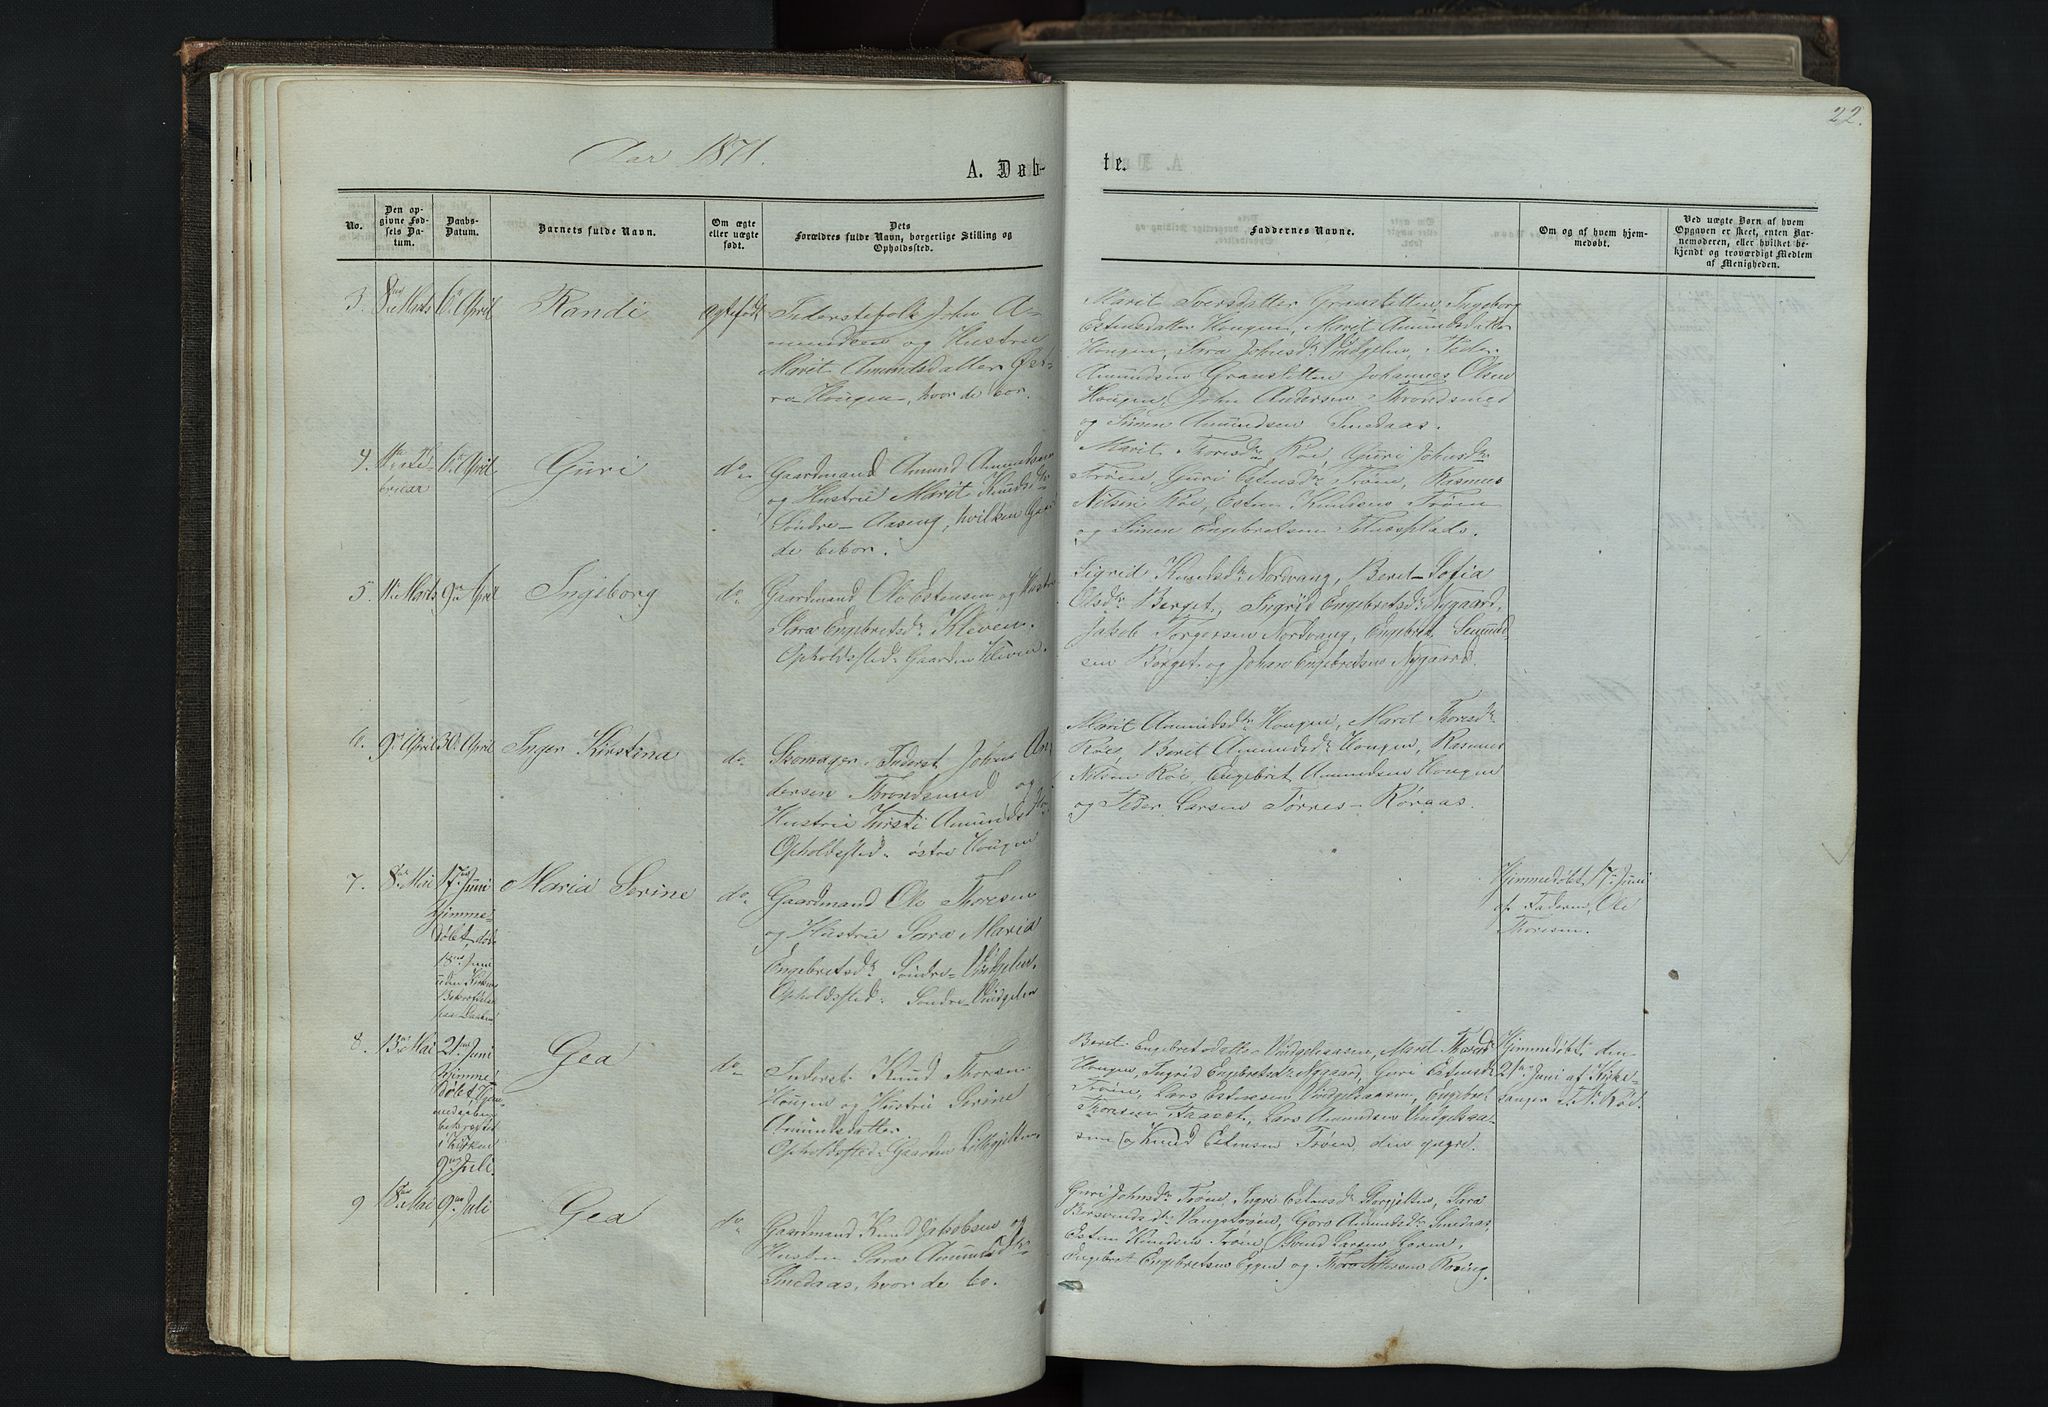 22.
Aar 1871.
A. Dab-
te.
No.
Den op-
givne Fød-
sels Da-
tum.
Daabs-
Datum.
Barnets fulde Navn.
Om ægte
eller uægte
født.
Dets
Forældres fulde Navn, borgerlige Stilling og
Opholdssted.
Faddernes Navne.
Om og af hvem hjem-
medøbt.
Ved uægte Børn af hvem
Opgaven er skeet, enten Bar-
nemoderen, eller hvilket be-
kjendt og troværdigt Medlem
af Menigheden.
3. 8de Marts 6te April Randi ægtefødt
Inderstefolk John A-
mundsen og Hustru
Marit Amundsdatter Øst-
re Hougen, hvor de bor.
Marit Iversdatter Granstetten, Ingeborg
Estensdatter Hougen, Marit Amundsdatter
Hougen, Sara Johnsdtr Vingelen, Peder
Amundsen Granstetten, Johannes Olsen
Hougen, John Andersen Throndsmed
og Simen Amundsen Smedaas.
4. 11te Fe-
bruar
6te April Guri do
Gaardmand Amund Amundsen
og Hustru Marit Knudsdtr
Søndre-Aaseng, hvilken Gaard
de bebor.
Marit Thoresdtr Røe, Guri Johnsdtr
Trøen, Guri Estensdtr Trøen, Rasmus
Nilsen Røe, Esten Knudsen Trøen
og Simen Engebretsen
5. 11te Marts 9de April Ingeborg do
Gaardmand Ole Estensen og Hustru
Sara Engebretsdtr Kleven.
Opholdssted: Gaarden Kleven.
Sigrid Knudsdtr Nordvang, Beret-Sofia
Olsdtr Berget, Ingrid Engebretsdtr Nygaard,
Jakob Torgersen Nordvang, Engebret Semund-
sen Berget og Johan Engebretsen Nygaard.
6. 9de April 30te April Inger Kirstina do
Skomager-Inderst Johns An-
dersen Throndsmed og
Hustru Kirsti Amundsdtr
Opholdssted: østre Hougen
Marit Amundsdtr Hougen, Marit Thoresdtr
Røe, Beret Amundsdtr Hougen, Rasmus
Nilsen Røe, Engebret Amundsen Hougen
og Peder Larsen Tørres-Røraas.
7. 8de Mai 17de Juni
hjimme-
døbt, død
18de Juni
uden Kirkens
Bekræftelse
paa Daaben
Maria Serine do
Gaardmand Ole Thoresen
og Hustru Sara Maria
Engebretsdtr Søndre-Vingelen.
Opholdssted: Søndre-Vingelen
Hjimmedøbt 17de Juni
af Faderen, Ole
Thoresen.
8. 13de Mai 21de Juni
hjimme-
døbt,
bekræftet
i Kirken
9de Juli.
Gea do
Inderst Knud Thorsen
Hougen og Hustru Serine
Amundsdatter
Opholdssted: Gaarden
Beret Engebretsdatter Vingelsaasen, Marit Thoresdtr
Hougen, Ingrid Engebretsdtr Nygaard, Guri Estensdtr
Trøen, Lars Estensen Vingelsaasen, Engebret
Thoresen Taaset, Lars Amundsen Vingelsaa-
sen og Knud Estensen Trøen, den yngre.
Hjimmedøbt den
21de Juni af Kirke-
sanger T. N. Røe.
9 18de Mai 9de Juli Gea do
Gaardmand Knud Jakobsen og
Hustru Sara Amundsdtr
Smedaas, hvor de bo.
Guri Johnsdtr Trøen, Ingri Estensdtr Sara
Vangstrøen, Goro Amundsdtr Smedaas,
Esten Knudsen Trøen, Svend Larsen
Engebret Engebretsen Eggen og Thore Røsing.